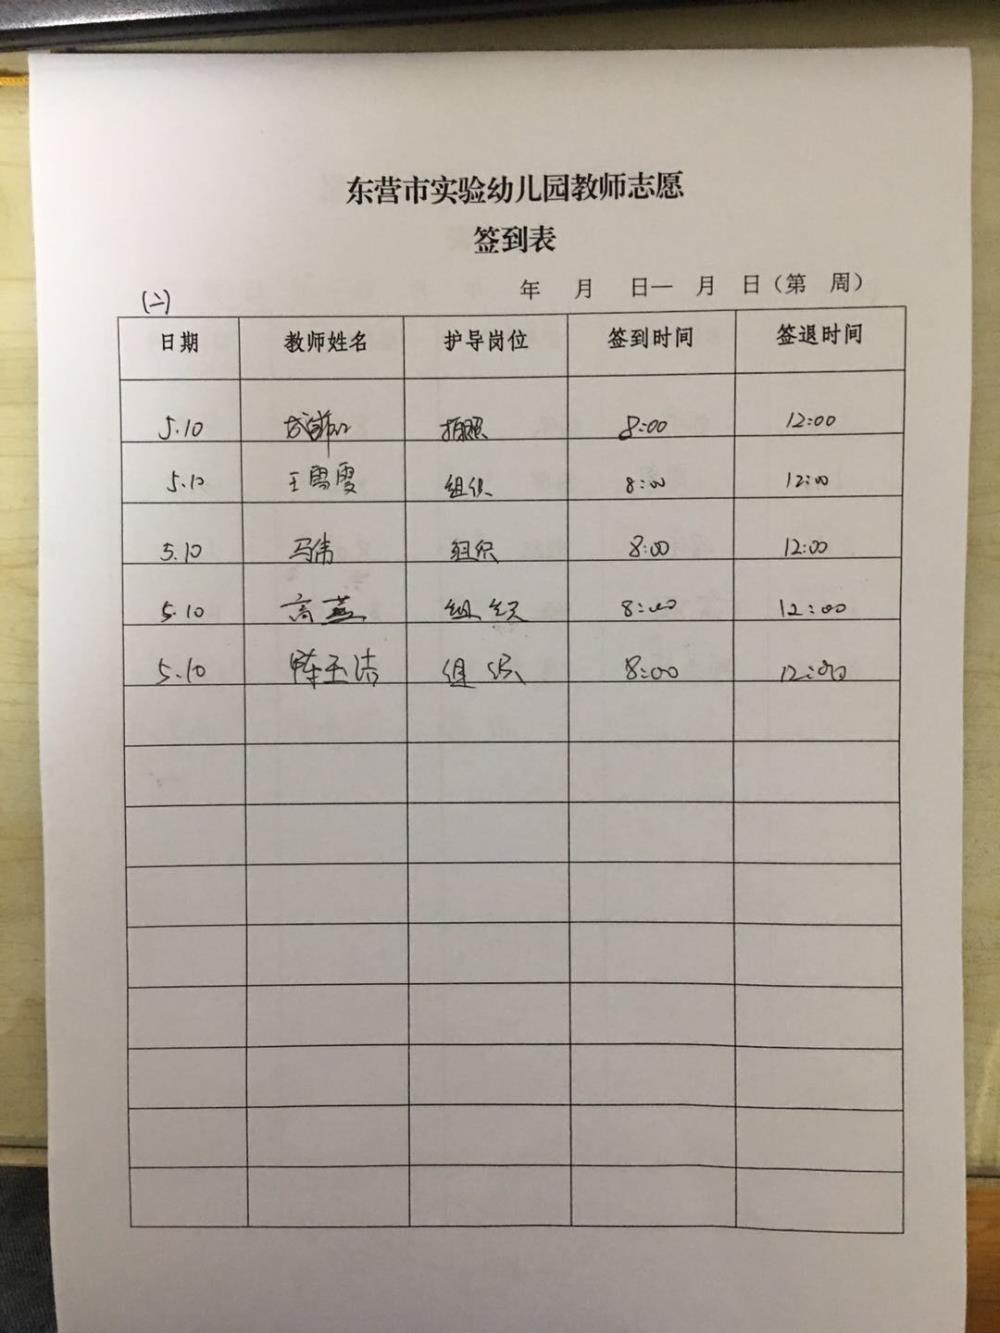 东营市实验幼儿园教师志愿
签到表
(二) 年 月 日— 月 日（第 周）
日期 教师姓名 护导岗位 签到时间 签退时间
5.10 拍照 8:00 12:00
5.10 王雪雯 组织 8:00 12:00
5.10 马伟 组织 8:00 12:00
5.10 高燕 组织 8:00 12:00
5.10 陈玉洁 组织 8:00 12:00